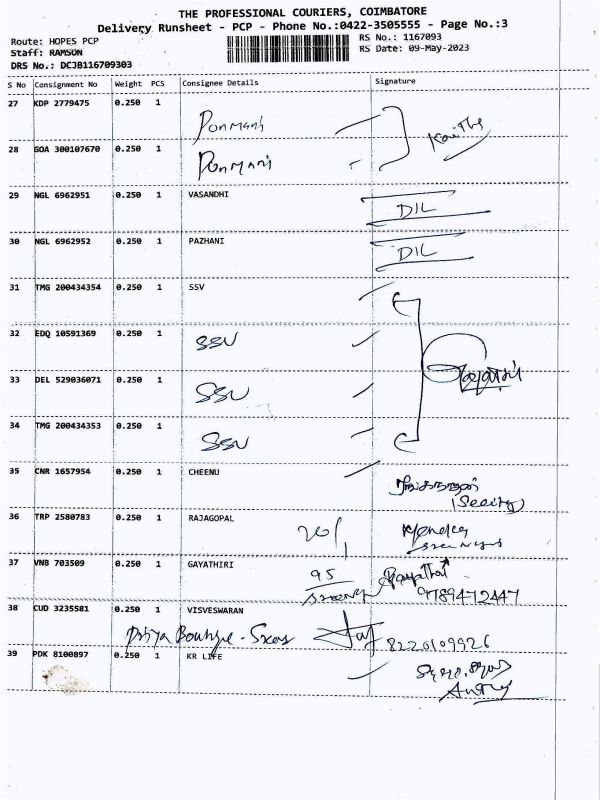 THE PROFESSIONAL COURIERS, COIMBATORE
Delivery Runsheet - PCP - Phone No.:0422-3505555 - Page No.:3
Route: HOPES PCP RS No.: 1167093
Staff: RAMSON RS Date: 09-May-2023
DRS No.: DCJB116709303
S No Consignment No Weight PCS Consignee Details Signature
27 KDP 2779475 0.250 1 Ponmani
28 GOA 300107670 0.250 1 Ponmani
29 NGL 6962951 0.250 1 VASANDHI DIL
30 NGL 6962952 0.250 1 PAZHANI DIL
31 TMG 200434354 0.250 1 SSV
32 EDQ 10591369 0.250 1 SSV
33 DEL 529036071 0.250 1 SSV
34 TMG 200434353 0.250 1 SSV
35 CNR 1657954 0.250 1 CHEENU
36 TRP 2580783 0.250 1 RAJAGOPAL 20/1
37 VNB 703509 0.250 1 GAYATHIRI 95 Gayathri
9789472447
38 CUD 3235581 0.250 1 VISVESWARAN
Priya Boutique 8220109926
39 PDK 8100897 0.250 1 KR LIFE